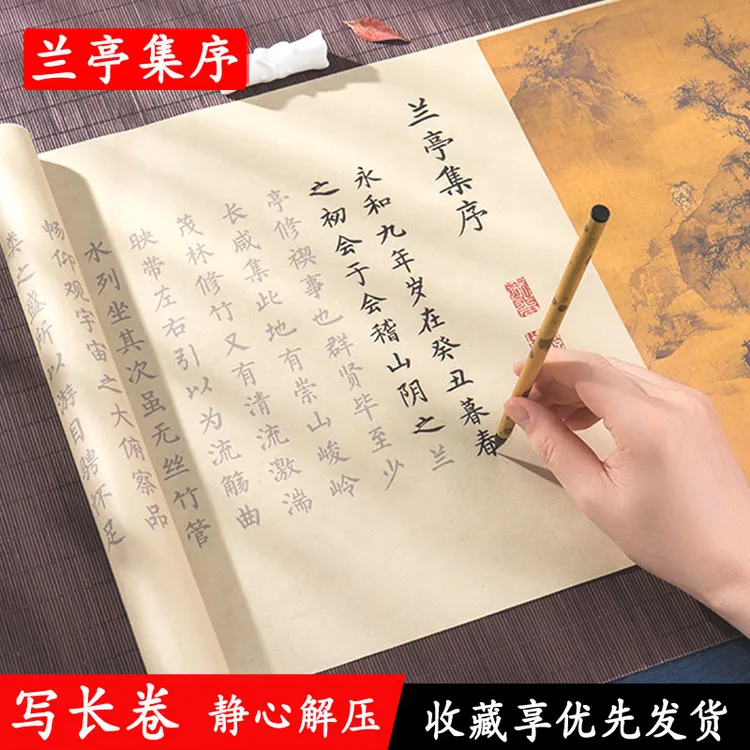 兰亭集序
兰亭集序
永和九年岁在癸丑暮春
之初会于会稽山阴之兰
亭修禊事也群贤毕至少
长咸集此地有崇山峻岭
茂林修竹又有清流激湍
映带左右引以为流觞曲
水列坐其次虽无丝竹管
畅仰观宇宙之大俯察品
类之盛所以游目骋怀足
写长卷 静心解压 收藏享优先发货